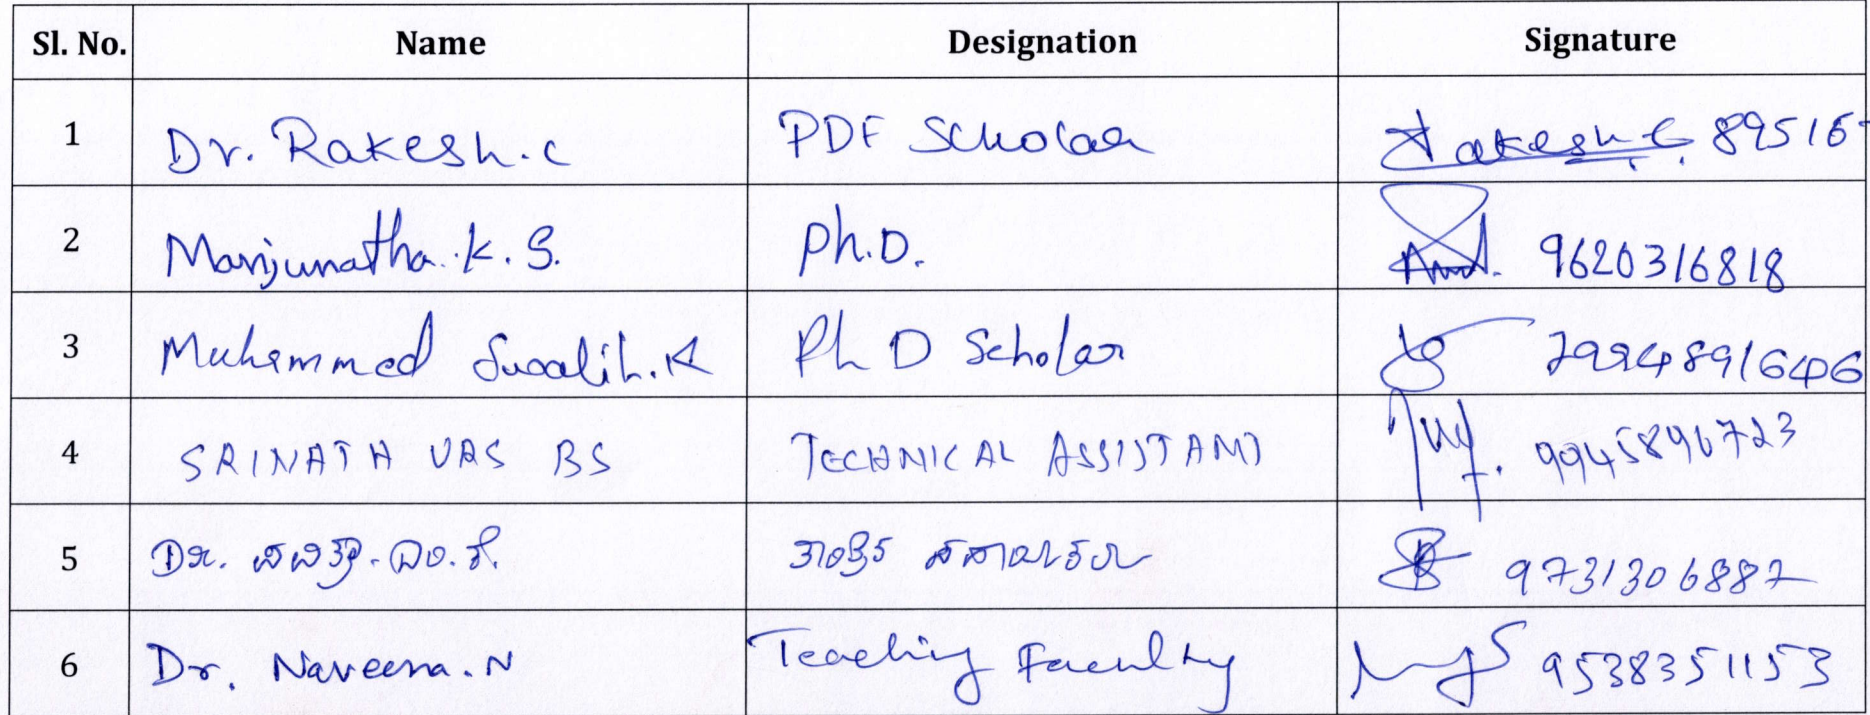 Sl. No. Name Designation Signature
1 Dr. Rakesh.c PDF Scholar Rakesh.C. 89516
2 Manjunatha.K.S. Ph.D. 9620316818
3 Muhammed Suvalih.K Ph D Scholar
4 SRINATH URS BS TECHNICAL ASSISTANT 9945896723
5 Dr. ಪವಿತ್ರ. ಎಂ.ಕೆ. ತಾಂತ್ರಿಕ ಸಹಾಯಕರು 9731306887
6 Dr. Naveena.N Teaching Faculty 9538351153